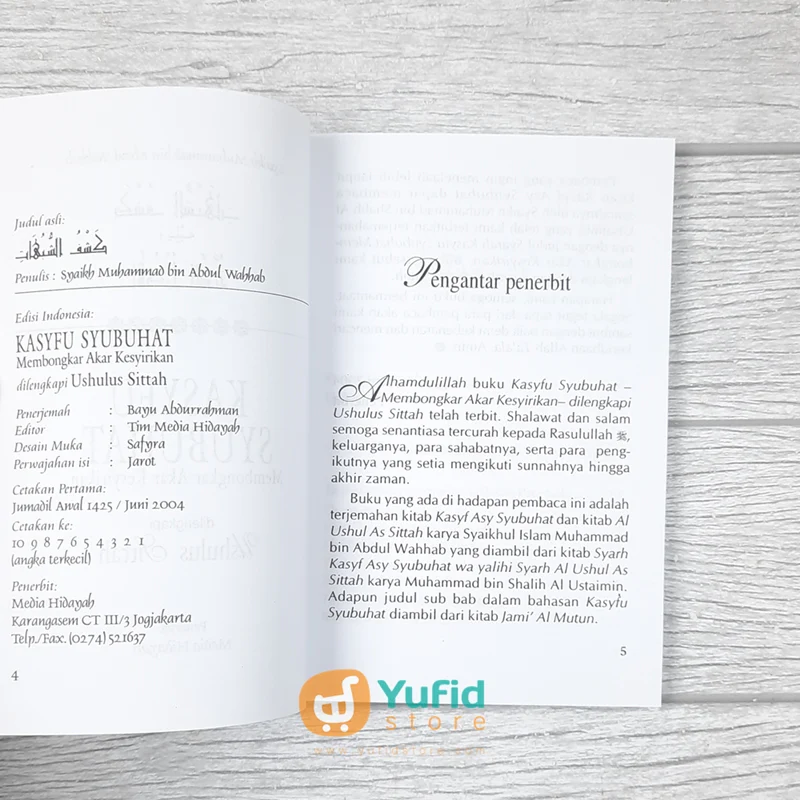 Judul asli:
كَشْفُ الشُّبُهَاتِ
Penulis : Syaikh Muhammad bin Abdul Wahhab
Edisi Indonesia:
KASYFU SYUBUHAT
Membongkar Akar Kesyirikan
dilengkapi Ushulus Sittah
Penerjemah : Bayu Abdurrahman
Editor : Tim Media Hidayah
Desain Muka : Safyra
Perwajahan isi : Jarot
Cetakan Pertama:
Jumadil Awal 1425 / Juni 2004
Cetakan ke:
10 9 8 7 6 5 4 3 2 1
(angka terkecil)
Penerbit:
Media Hidayah
Karangasem CT III/3 Jogjakarta
Telp./Fax. (0274) 521637
4
Pengantar penerbit
Alhamdulillah buku Kasyfu Syubuhat –
Membongkar Akar Kesyirikan– dilengkapi
Ushulus Sittah telah terbit. Shalawat dan salam
semoga senantiasa tercurah kepada Rasulullah ﷺ,
keluarganya, para sahabatnya, serta para peng-
ikutnya yang setia mengikuti sunnahnya hingga
akhir zaman.
Buku yang ada di hadapan pembaca ini adalah
terjemahan kitab Kasyf Asy Syubuhat dan kitab Al
Ushul As Sittah karya Syaikhul Islam Muhammad
bin Abdul Wahhab yang diambil dari kitab Syarh
Kasyf Asy Syubuhat wa yalihi Syarh Al Ushul As
Sittah karya Muhammad bin Shalih Al Ustaimin.
Adapun judul sub bab dalam bahasan Kasyfu
Syubuhat diambil dari kitab Jami' Al Mutun.
5
Yufid
store